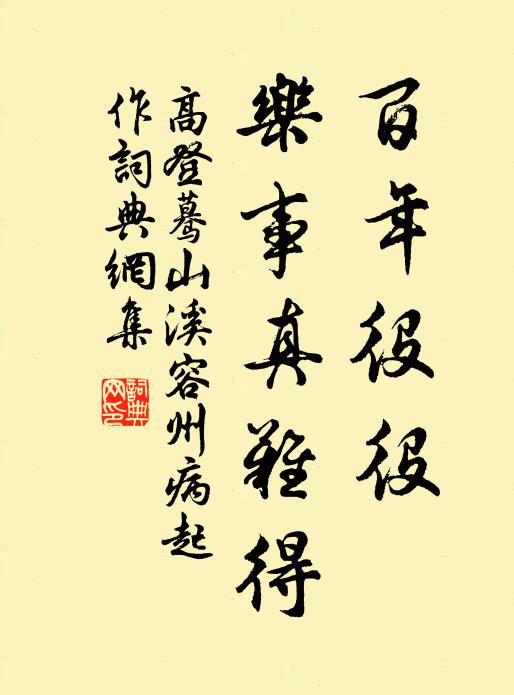 百年役役
樂事真難得
高登驀山溪容州病起
作詞典網集
詞典網印